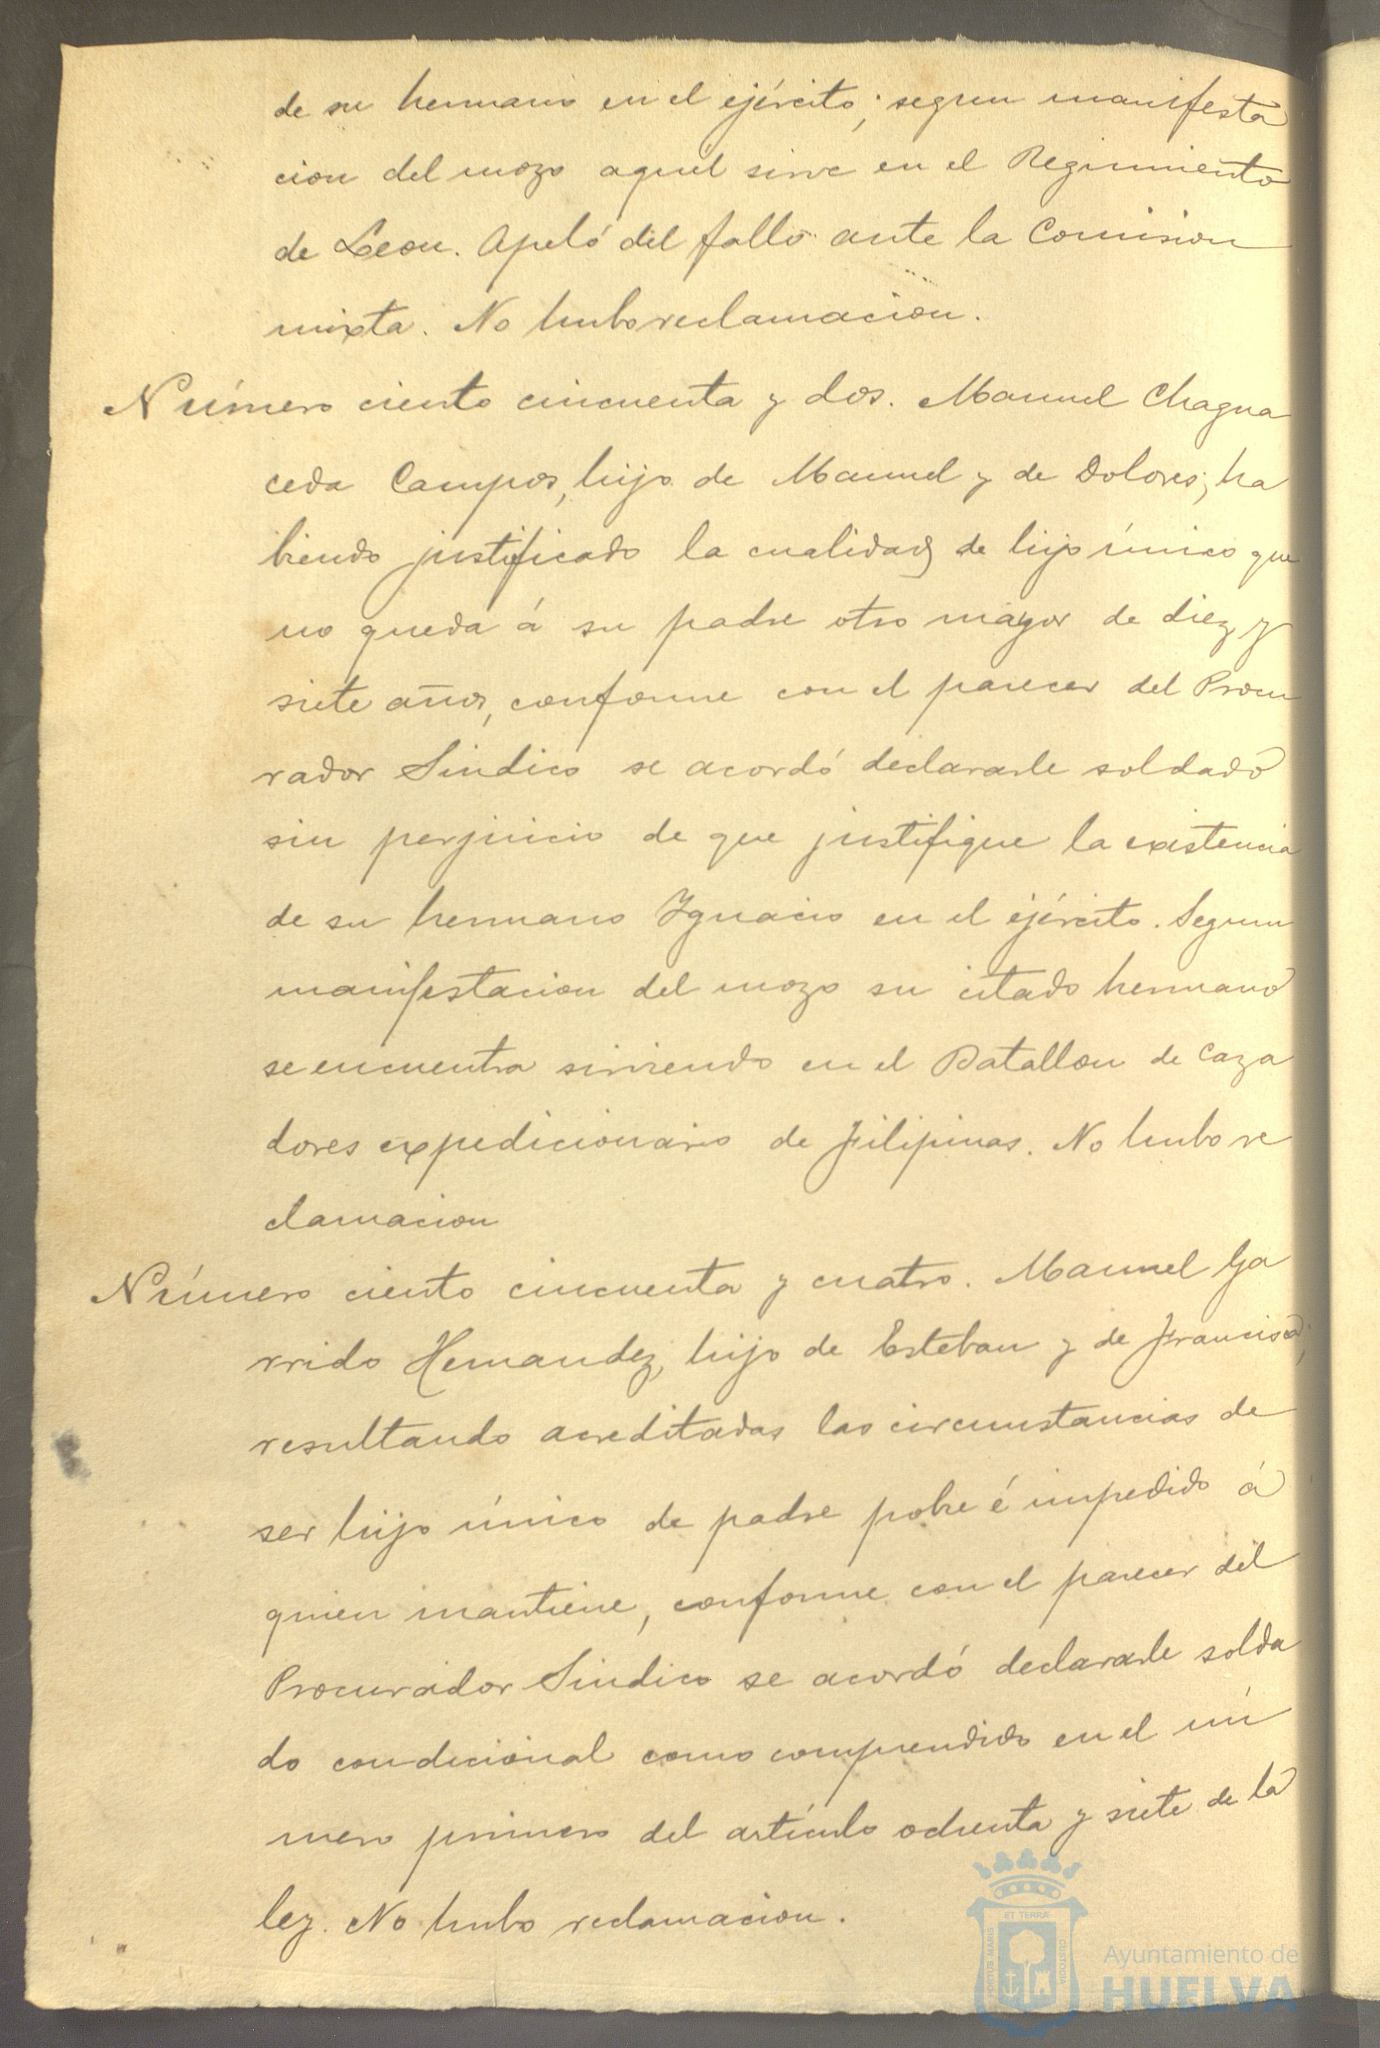 de su hermano en el ejército; segun manifesta
cion del mozo aquel sirve en el Regimiento
de Leon. Apeló del fallo ante la Comision
mixta. No hubo reclamacion.
Número ciento cincuenta y dos. Manuel Chagua
ceda Campos, hijo de Manuel y de Dolores; ha
biendo justificado la cualidad de hijo único que
no queda á su padre otro mayor de diez y
siete años, conforme con el parecer del Procu
rador Sindico se acordó declararle soldado
sin perjuicio de que justifique la existencia
de su hermano Ygnacio en el ejército. Segun
manifestacion del mozo su citado hermano
se encuentra sirviendo en el Batallon de Caza
dores expedicionario de Filipinas. No hubo re
clamacion
Número ciento cincuenta y cuatro. Manuel Ga
rrido Hernandez, hijo de Esteban y de Francisca;
resultando acreditadas las circunstancias de
ser hijo único de padre pobre é impedido á
quien mantiene, conforme con el parecer del
Procurador Sindico se acordó declararle solda
do condicional como comprendido en el nú
mero primero del artículo ochenta y siete de la
ley. No hubo reclamacion.
PORTUS MARIS ET TERRÆ CUSTODIA
Ayuntamiento de
HUELVA